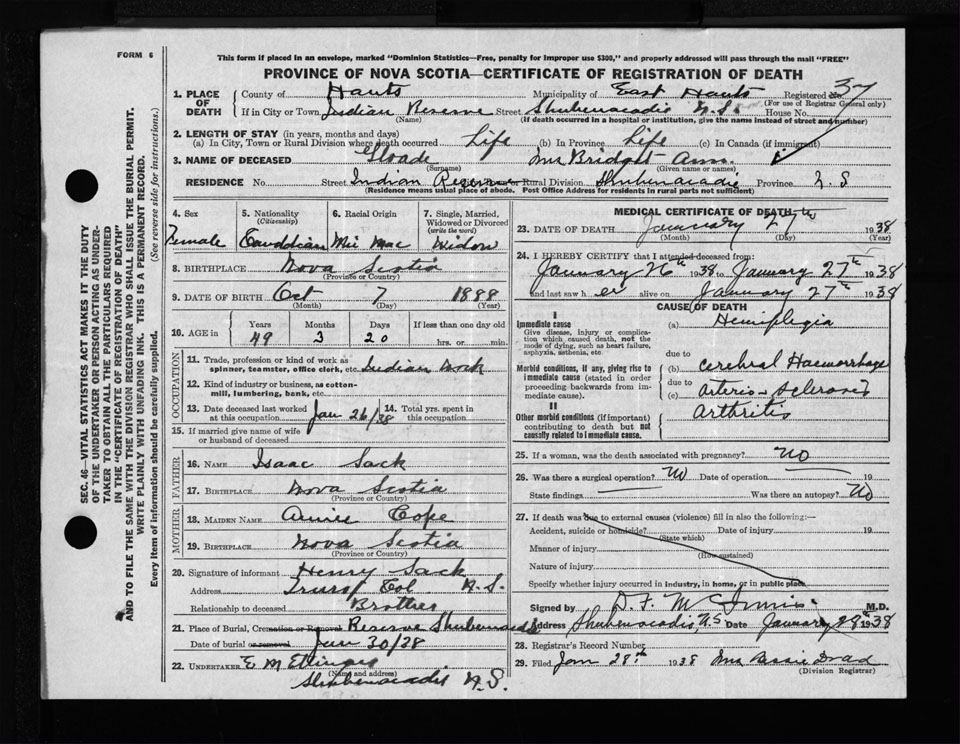 FORM 6
This form if placed in an envelope, marked "Dominion Statistics—Free, penalty for improper use $300," and properly addressed will pass through the mail "FREE"
PROVINCE OF NOVA SCOTIA—CERTIFICATE OF REGISTRATION OF DEATH
1. PLACE OF DEATH
County of Hants Municipality of East Hants Registered No. 37
(For use of Registrar General only)
If in City or Town Indian Reserve Street Shubenacadie N.S. House No.
(Name) (If death occurred in a hospital or institution, give the name instead of street and number)
2. LENGTH OF STAY (in years, months and days)
(a) In City, Town or Rural Division where death occurred Life (b) In Province Life (c) In Canada (if immigrant)
3. NAME OF DECEASED Gloade Mrs Bridget Ann.
(Surname) (Given name or names)
RESIDENCE No. Street Indian Reserve or Rural Division Shubenacadie Province N.S
(Residence means usual place of abode. Post Office Address for residents in rural parts not sufficient)
4. Sex Female
5. Nationality (Citizenship) Canadian
6. Racial Origin Mic Mac
7. Single, Married, Widowed or Divorced (write the word) Widow
8. BIRTHPLACE Nova Scotia
(Province or Country)
9. DATE OF BIRTH Oct 7 1888
(Month) (Day) (Year)
10. AGE in Years 49 Months 3 Days 20 If less than one day old hrs. or min.
OCCUPATION
11. Trade, profession or kind of work as spinner, teamster, office clerk, etc. Indian Work
12. Kind of industry or business, as cotton-mill, lumbering, bank, etc.
13. Date deceased last worked at this occupation Jan 26/38 14. Total yrs. spent in this occupation
15. If married give name of wife or husband of deceased
FATHER
16. NAME Isaac Sack
17. BIRTHPLACE Nova Scotia
(Province or Country)
MOTHER
18. MAIDEN NAME Annie Cope
19. BIRTHPLACE Nova Scotia
(Province or Country)
20. Signature of informant Henry Sack
Address Truro Col N.S.
Relationship to deceased Brother
21. Place of Burial, Cremation or Removal Reserve Shubenacadie
Date of burial or removal Jan 30/38
22. UNDERTAKER E M Ettinger
(Name and address)
Shubenacadie N.S.
MEDICAL CERTIFICATE OF DEATH
23. DATE OF DEATH January 27th 1938
(Month) (Day) (Year)
24. I HEREBY CERTIFY that I attended deceased from:
January 26th 1938 to January 27th 1938
and last saw her alive on January 27th 1938
CAUSE OF DEATH
I
Immediate cause
Give disease, injury or complication which caused death, not the mode of dying, such as heart failure, asphyxia, asthenia, etc
(a) Hemiplegia
due to
Morbid conditions, if any, giving rise to immediate cause (stated in order proceeding backwards from immediate cause).
(b) Cerebral Haemorrhage
due to
(c) Arterio Sclerosis
II
Other morbid conditions (if important) contributing to death but not causally related to immediate cause.
Arthritis
25. If a woman, was the death associated with pregnancy? No
26. Was there a surgical operation? No Date of operation 19
State findings Was there an autopsy? No
27. If death was due to external causes (violence) fill in also the following:—
Accident, suicide or homicide? Date of injury 19
(State which)
Manner of injury
(How sustained)
Nature of injury
Specify whether injury occurred in industry, in home, or in public place
Signed by D F McInnis M.D.
Address Shubenacadie N.S Date January 28th 1938
28. Registrar's Record Number
29. Filed Jan 28th 1938 Mrs Bessie
(Division Registrar)
SEC. 46—VITAL STATISTICS ACT MAKES IT THE DUTY
OF THE UNDERTAKER OR PERSON ACTING AS UNDER-
TAKER TO OBTAIN ALL THE PARTICULARS REQUIRED
IN THE "CERTIFICATE OF REGISTRATION OF DEATH"
AND TO FILE THE SAME WITH THE DIVISION REGISTRAR WHO SHALL ISSUE THE BURIAL PERMIT.
WRITE PLAINLY WITH UNFADING INK. THIS IS A PERMANENT RECORD.
Every item of information should be carefully supplied. (See reverse side for instructions.)